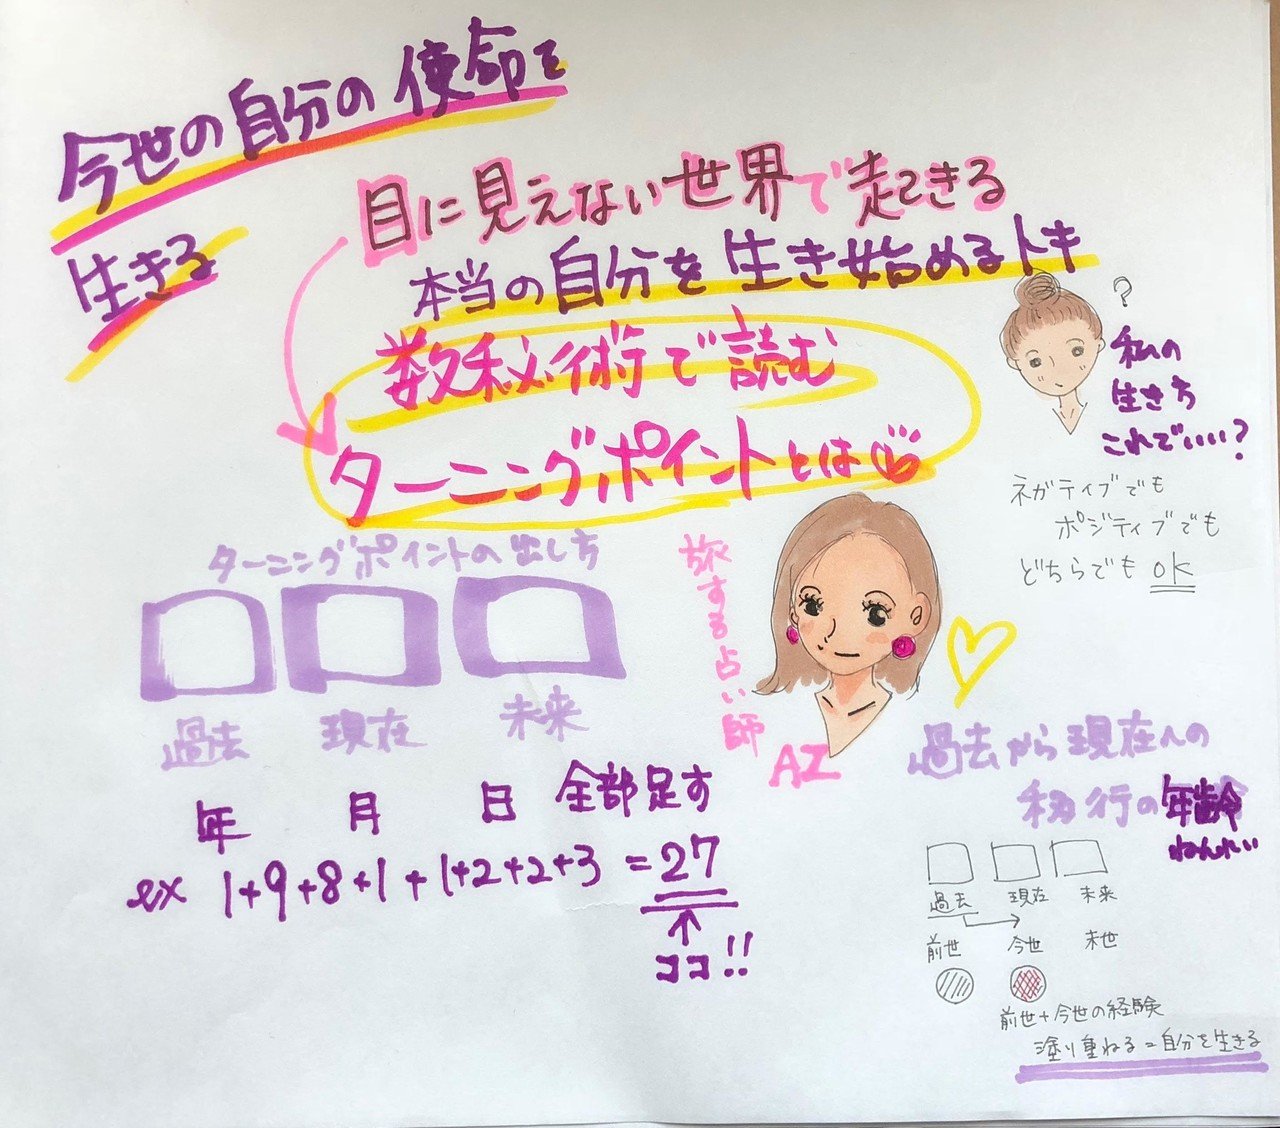 今世の自分の使命を
生きる
目に見えない世界で起きる
本当の自分を生き始めるトキ
数秘術で読む
ターニングポイントとは
?
私の
生き方
これでいい?
ネガティブでも
ポジティブでも
どちらでもOK
ターニングポイントの出し方
過去 現在 未来
年 月 日 全部足す
ex 1+9+8+1+1+2+2+3=27
↑
ココ!!
旅する占い師
AI
過去から現在への
移行の年齢
ねんれい
過去 現在 未来
前世 今世 来世
前世+今世の経験
塗り重ねる=自分を生きる